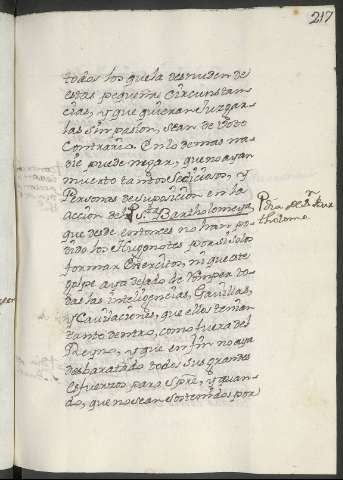 217
todos los que la desnuden de
estas pequeñas Circunstan-
cias, y que quieran Juzgar-
las sin pasion, sean de Voto
Contrario. En lo demas na-
die puede negar, que no ayan
muerto tantos Sediciosos, y
Personas de suposicion en la
accion del Dia de S.n Bartholome,
que desde entonces no han po-
dido los Hugonotes por si solos
formar Exercitos, ni que ate
golpe aya dejado de romper to-
das las inteligencias, Gavillas,
y Cavilaciones, que ellos tenian
tanto dentro, como fuera del
Reyno, y que en fin no aya
desbaratado todos sus grandes
esfuerzos para spre, y quan-
do, que no sean sostenidos por
Dia de S.n Bar
tholome.